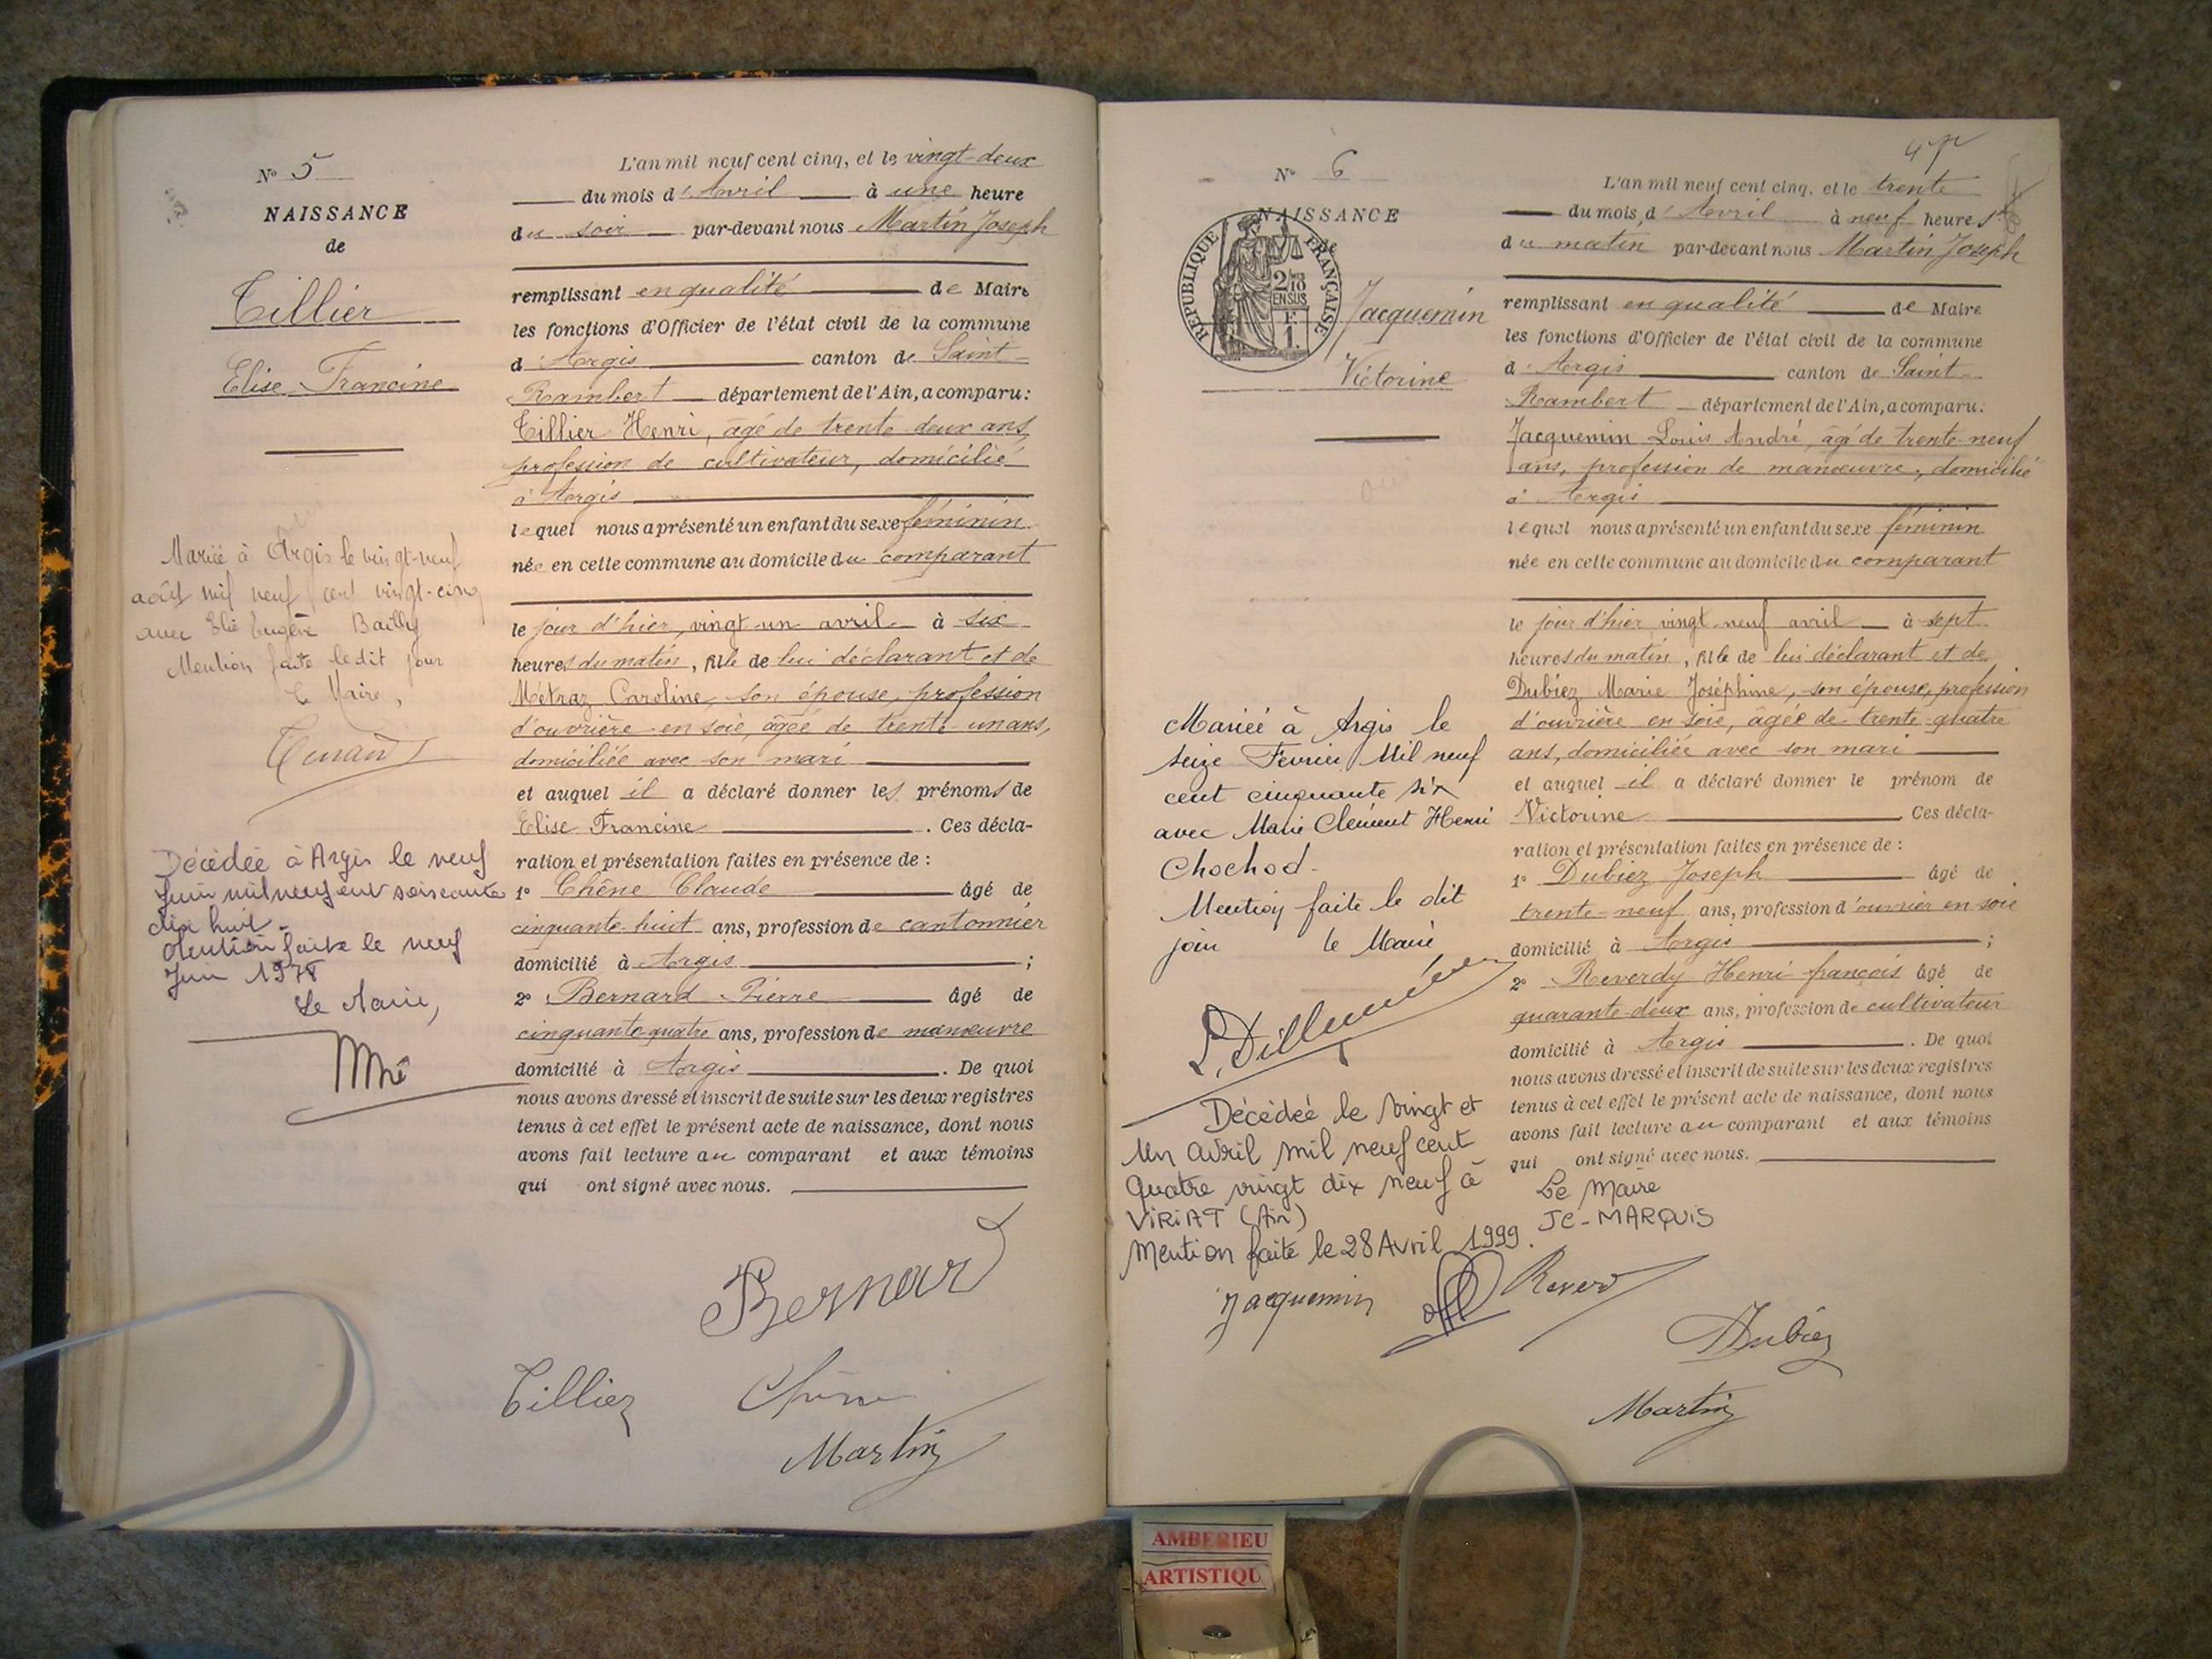 N° 5
NAISSANCE
de
Tillier
Elise Francine
Mariée à Argis le vingt-neuf
août mil neuf cent vingt-cinq
avec Elie Eugène Bailly
Mention faite ledit jour
Le Maire,
Décédée à Argis le neuf
Juin mil neuf cent soixante
dix huit.
Mention faite le neuf
Juin 1978
Le Maire,
L'an mil neuf cent cinq, et le vingt-deux
du mois d'Avril à une heure
du soir par-devant nous Martin Joseph
remplissant en qualité de Maire
les fonctions d'Officier de l'état civil de la commune
d'Argis canton de Saint-
Rambert département de l'Ain, a comparu:
Tillier Henri, âgé de trente deux ans,
profession de cultivateur, domicilié
à Argis
lequel nous a présenté un enfant du sexe féminin
née en cette commune au domicile du comparant
le jour d'hier, vingt-un avril à six
heures du matin, fille de lui déclarant et de
Métraz Caroline, son épouse, profession
d'ouvrière en soie, âgée de trente-un ans,
domiciliée avec son mari
et auquel il a déclaré donner les prénoms de
Elise Francine . Ces décla-
ration et présentation faites en présence de :
1° Chêne Claude âgé de
cinquante-huit ans, profession de cantonnier
domicilié à Argis ;
2° Bernard Pierre âgé de
cinquante-quatre ans, profession de manœuvre
domicilié à Argis . De quoi
nous avons dressé et inscrit de suite sur les deux registres
tenus à cet effet le présent acte de naissance, dont nous
avons fait lecture au comparant et aux témoins
qui ont signé avec nous.
Bernard
Tillier Chêne
Martin
N° 6
NAISSANCE
de
RÉPUBLIQUE FRANÇAISE
2/10
EN SUS
F.
1.
Jacquemin
Victorine
oui
Mariée à Argis le
seize Février Mil neuf
cent cinquante six
avec Marie Clément Henri
Chochod.
Mention faite le dit
jour le Maire
Décédée le vingt et
un avril mil neuf cent
quatre vingt dix neuf à
VIRIAT (Ain)
Mention faite le 28 Avril 1999.
Le Maire
JC-MARQUIS
L'an mil neuf cent cinq, et le trente
du mois, d'Avril à neuf heures
du matin par-devant nous Martin Joseph
remplissant en qualité de Maire
les fonctions d'Officier de l'état civil de la commune
d'Argis canton de Saint-
Rambert département de l'Ain, a comparu:
Jacquemin Louis André, âgé de trente-neuf
ans, profession de manœuvre, domicilié
à Argis
lequel nous a présenté un enfant du sexe féminin
née en cette commune au domicile du comparant
le jour d'hier, vingt-neuf avril à sept
heures du matin, fille de lui déclarant et de
Dubiez Marie Joséphine, son épouse, profession
d'ouvrière en soie, âgée de trente-quatre
ans, domiciliée avec son mari
et auquel il a déclaré donner le prénom de
Victorine Ces décla-
ration et présentation faites en présence de :
1° Dubiez Joseph âgé de
trente-neuf ans, profession d'ouvrier en soie
domicilié à Argis ;
2° Reverdy Henri françois âgé de
quarante-deux ans, profession de cultivateur
domicilié à Argis . De quoi
nous avons dressé et inscrit de suite sur les deux registres
tenus à cet effet le présent acte de naissance, dont nous
avons fait lecture au comparant et aux témoins
qui ont signé avec nous.
Jacquemin
Dubiez
Martin
AMBERIEU
ARTISTIQU